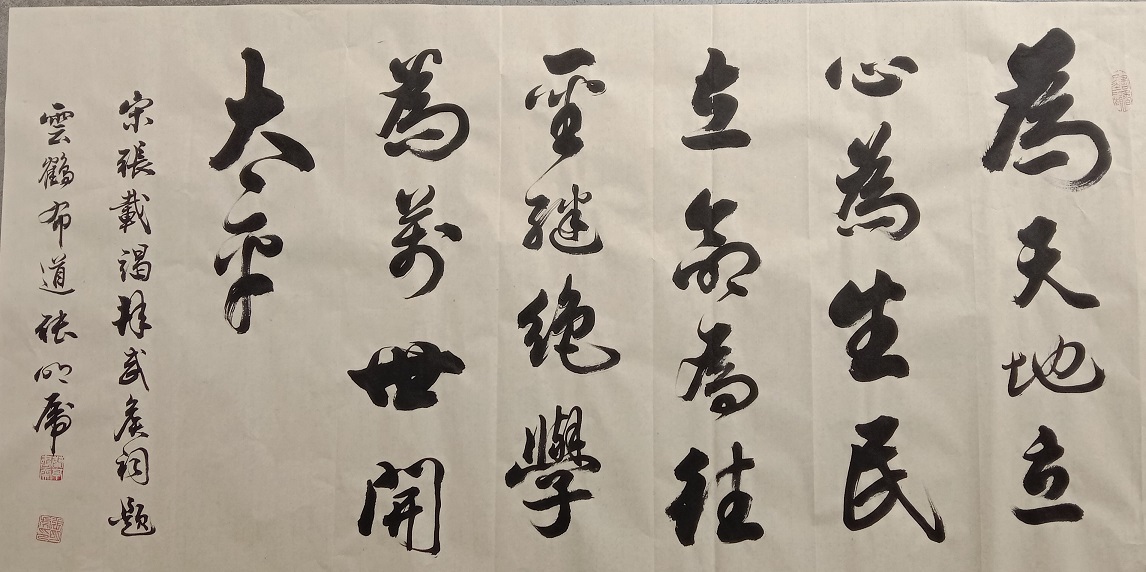 為天地立
心為生民
立命為往
聖継絶學
為萬世開
太平
宋張載謁拜武侯祠題
雲鶴布道張明虎